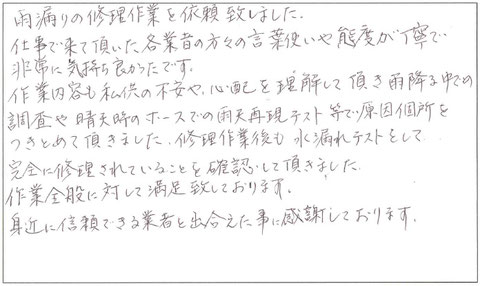 雨漏りの修理作業を依頼致しました.
仕事で来て頂いた各業者の方々の言葉使いや態度が丁寧で
非常に気持ち良かったです.
作業内容も私供の不安や、心配を理解して頂き雨降る中での
調査や晴天時のホースでの雨天再現テスト等で原因個所を
つきとめて頂きました、修理作業後も水漏れテストをして
完全に修理されていることを確認して頂きました.
作業全般に対して満足致しております.
身近に信頼できる業者と出合えた事に感謝しております.